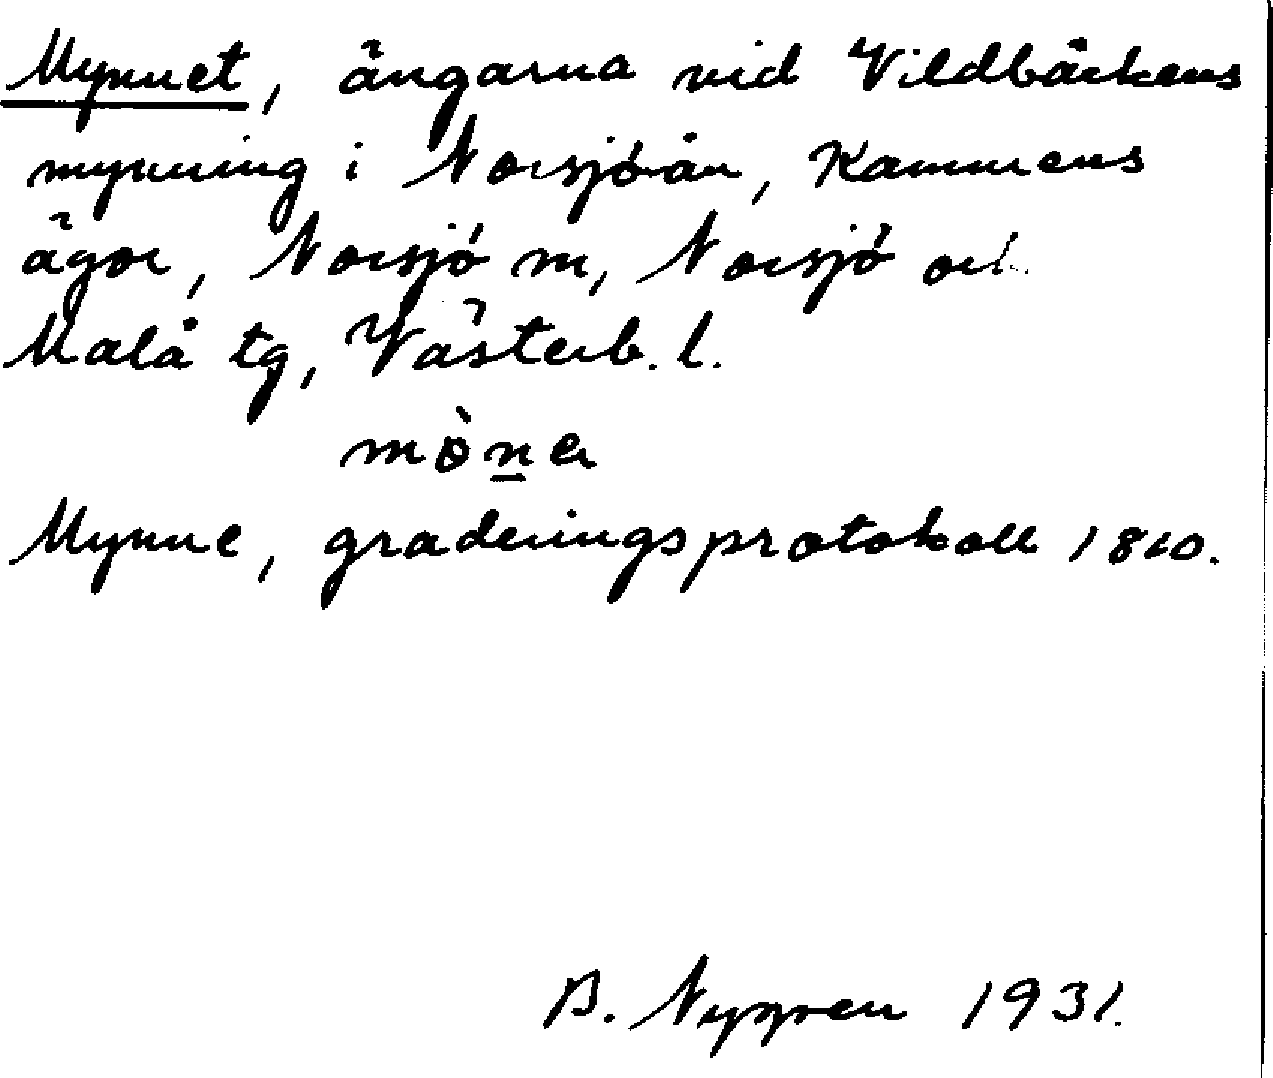 Mynnet, ängarna vid Vildbäckens
mynning i Norsjöån, Kammens
ägor, Norsjö sn, Norsjö och
Malå tg, Västerb. l.
mò̱na
Mynne, graderingsprotokoll 1810.
B. Nygren 1931.